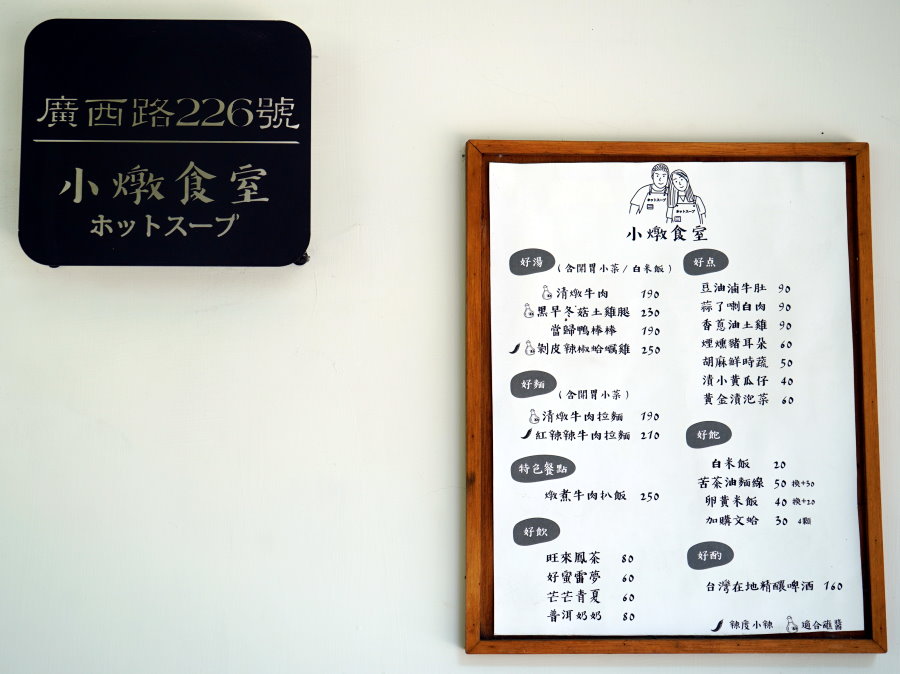 廣西路226號
小燉食室
ホットスープ
ホットスープ
ホットスープ
小燉食室
好湯 (含開胃小菜/白米飯)
清燉牛肉 190
黑早冬菇土雞腿 230
當歸鴨棒棒 190
剝皮辣椒蛤蠣雞 250
好麵 (含開胃小菜)
清燉牛肉拉麵 190
紅辣辣牛肉拉麵 210
特色餐點
燉煮牛肉扒飯 250
好飲
旺來鳳茶 80
好蜜雷夢 60
芒芒青夏 60
普洱奶奶 80
好点
豆油滷牛肚 90
蒜了喇白肉 90
香蔥油土雞 90
煙燻豬耳朵 60
胡麻鮮時蔬 50
漬小黃瓜仔 40
黃金漬泡菜 60
好飽
白米飯 20
苦茶油麵線 50 換+30
卵黃米飯 40 換+20
加購文蛤 30 4顆
好酌
台灣在地精釀啤酒 160
辣度小辣 適合蘸醬